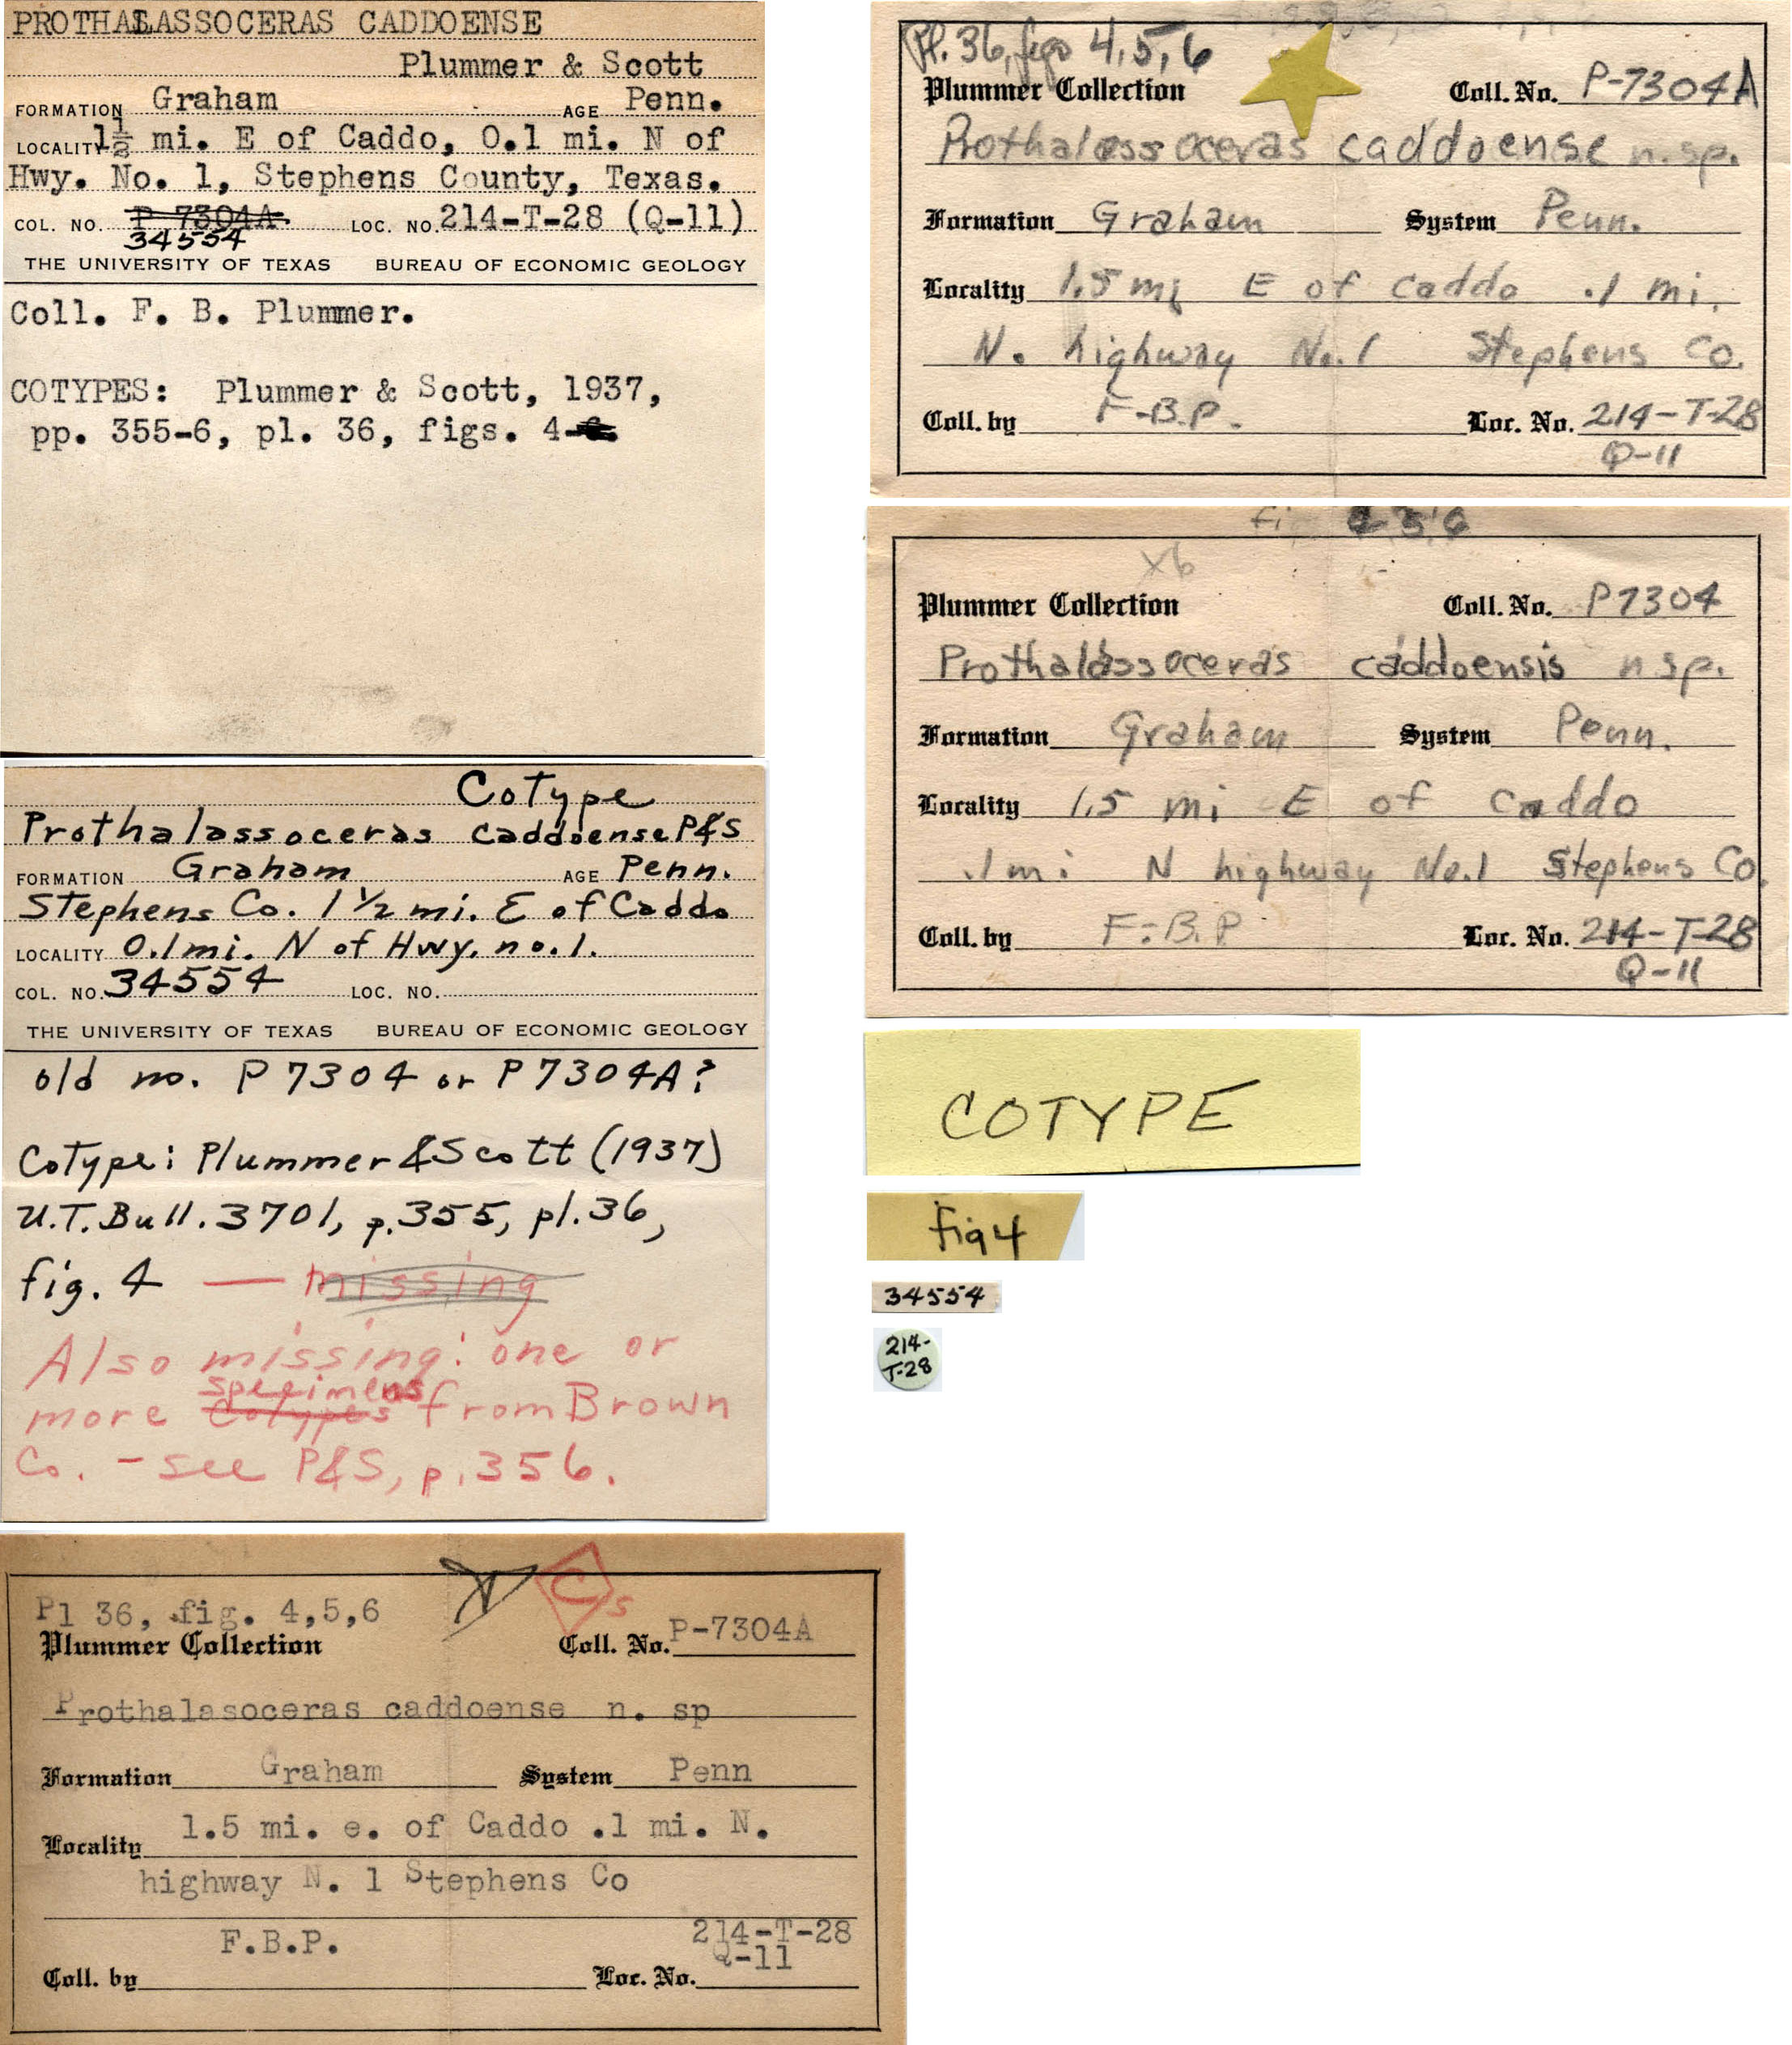 PROTHALASSOCERAS CADDOENSE
Plummer & Scott
FORMATION Graham AGE Penn.
LOCALITY 1 1/2 mi. E of Caddo, 0.1 mi. N of
Hwy. No. 1, Stephens County, Texas.
COL. NO. P-7304A. LOC. NO. 214-T-28 (Q-11)
34554
THE UNIVERSITY OF TEXAS BUREAU OF ECONOMIC GEOLOGY
Coll. F. B. Plummer.
COTYPES: Plummer & Scott, 1937,
pp. 355-6, pl. 36, figs. 4
Cotype
Prothalassoceras caddoense P&S
FORMATION Graham AGE Penn.
Stephens Co. 1 1/2 mi. E of Caddo
LOCALITY 0.1mi. N of Hwy. no.1.
COL. NO. 34554 LOC. NO.
THE UNIVERSITY OF TEXAS BUREAU OF ECONOMIC GEOLOGY
old no. P 7304 or P 7304A?
Cotype: Plummer & Scott (1937)
U.T. Bull. 3701, p.355, pl.36,
fig. 4 — missing
Also missing: one or
specimens
more cotypes from Brown
Co. - see P&S, p.356.
C s
Pl 36, fig. 4,5,6
Plummer Collection Coll. No. P-7304A
Prothalasoceras caddoense n. sp
Formation Graham System Penn
Locality 1.5 mi. e. of Caddo .1 mi. N.
highway N. 1 Stephens Co
F.B.P. 214-T-28
Q-11
Coll. by Loc. No.
Pl. 36, figs 4,5,6
Plummer Collection Coll. No. P-7304A
Prothalassoceras caddoense n.sp.
Formation Graham System Penn.
Locality 1.5 mi E of Caddo .1 mi.
N. highway No.1 Stephens Co.
Coll. by F.B.P. Loc. No. 214-T-28
Q-11
x6
Plummer Collection Coll. No. P7304
Prothalassoceras caddoensis n sp.
Formation Graham System Penn.
Locality 1.5 mi E of Caddo
.1mi N highway No.1 Stephens Co.
Coll. by F.B.P Loc. No. 214-T-28
Q-11
COTYPE
fig 4
34554
214-
T-28